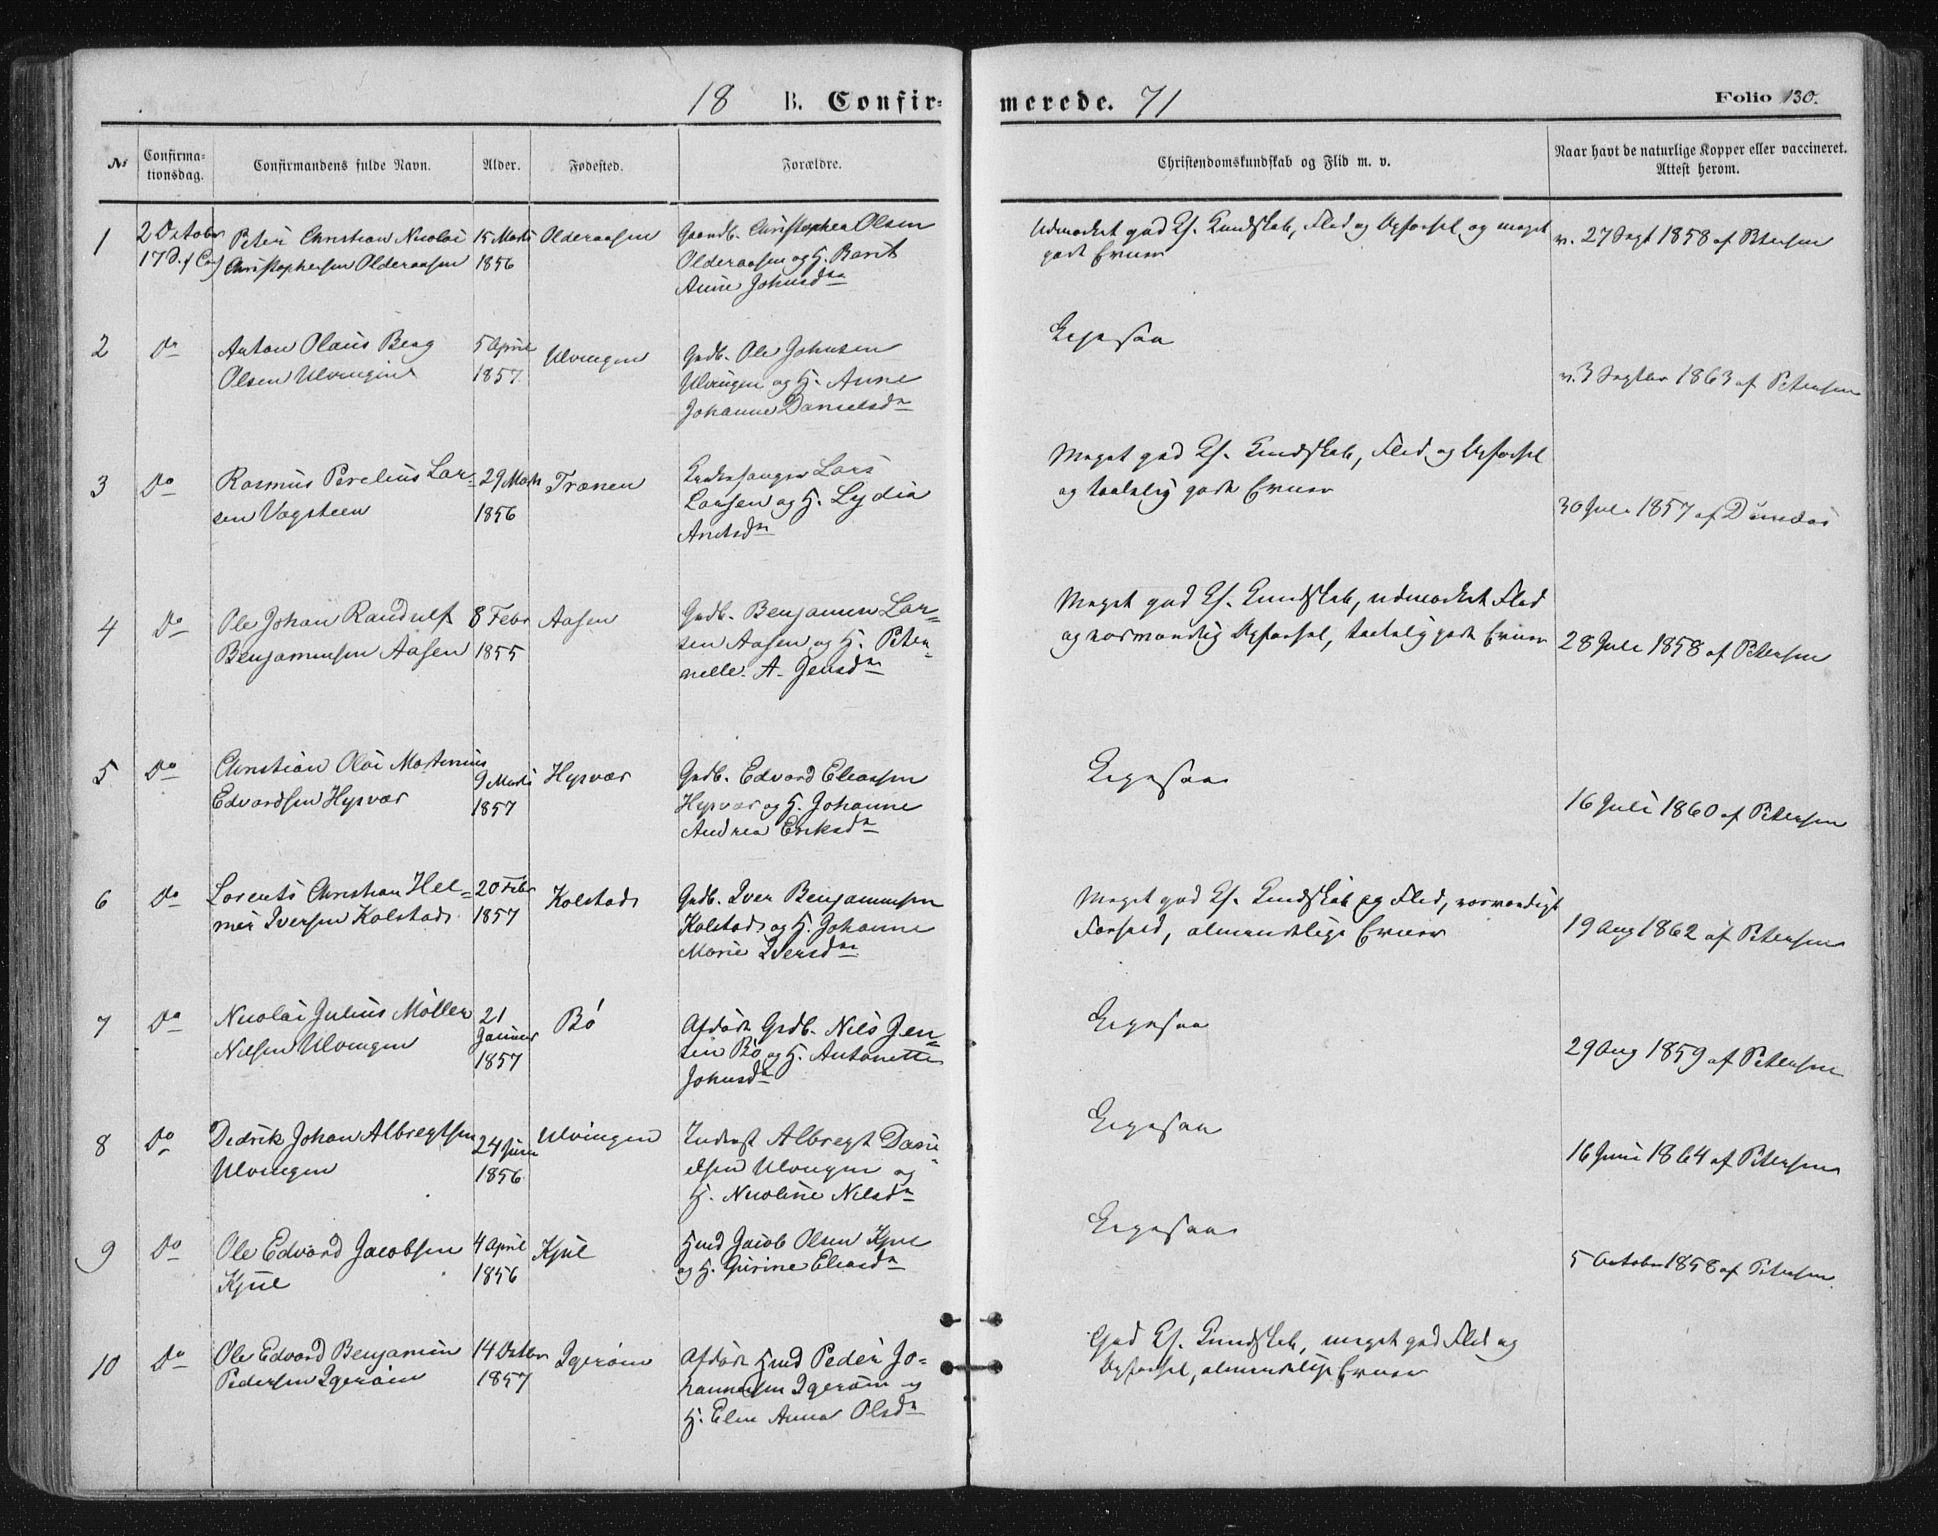 18 B. Confirmerede. 71
Folio 130.
No
Confirma-
tionsdag.
Confirmandens fulde Navn.
Alder.
Fødested.
Forældre.
Christendomskundskab og Flid m. v.
Naar havt de naturlige Kopper eller vaccineret.
Attest herom.
1
2 October
Peter Christian Nicolai
Christophersen Olderaasen
15 Marts
1856
Olderaasen
Gaardb. Christopher Olsen
Olderaasen og H. Berit
Anne Johnsdr
Udmærket god Ch. Kundskab, Flid og Opførsel og meget
gode Evner
v. 27 Sept 1858 af Petersen
2
Do
Anton Olaus Berg
Olsen Ulvingen
5 April
1857
Ulvingen
Grdb. Ole Johnsen
Ulvingen og H. Anne
Johanne Danielsdr
Ligesaa
v. 3 Septbr 1863 af Petersen
3
Do
Rasmus Perelius Lar-
sen Vagsteen
29 Marts
1856
Trænen
Kirkesanger Lars
Larsen og H. Lydia
Meget god Ch. Kundskab, Flid og Opførsel
og taalelig gode Evner
30 Juli 1857 af Dundas
4
Do
Ole Johan Randulf
Benjaminsen Aasen
8 Febr
1855
Aasen
Grdb. Benjamin Lar-
sen Aasen og H. Peter-
nelle A. Jensdr
Meget god Ch. Kundskab, udmærket Flid
og værmændig Opførsel, taalelig gode Evner
28 Juli 1858 af Petersen
5
Do
Christian Olai Martinius
Edvardsen Hysvær
9 Marts
1857
Hysvær
Grdb. Edvard Eliassen
Hysvær og H. Johanne
Andrea Eriksdr
Ligesaa
16 Juli 1860 af Petersen
6
Do
Lorents Christian Hel-
mer Iversen Kolstad
20 Febr
1857
Kolstad
Grdb. Iver Benjaminsen
Kolstad og H. Johanne
Marie Iversdr
Meget god Ch. Kundskab og Flid,
Forhold, almindelige Evner
19 Aug 1862 af Petersen
7
Do
Nicolai Julius Møller
Nilsen Ulvingen
21
Januar
1857
Bö
Afdøde Grdb. Nils Jen-
sen Bö og H. Antonette
Johnsdr
Ligesaa
29 Aug 1859 af Petersen
8
Do
Didrik Johan Albregtsen
Ulvingen
24 Juni
1856
Ulvingen
Inderst Albregt Dani-
elsen Ulvingen og
H. Nicoline Nilsdr
Ligesaa
16 Juni 1864 af Petersen
9
Do
Ole Edvard Jacobsen
Kjul
4 April
1856
Kjul
Hmd Jacob Olsen Kjul
og H. Gurine Eliasdr
Ligesaa
5 October 1858 af Petersen
10
Do
Ole Edvard Benjamin
Pedersen Igerøen
14 Octbr
1857
Igerøen
Afdøde Hmd Peder Jo-
hannesen Igerøen og
H. Elen Anna Olsdr
God Ch. Kundskab, meget god Flid og
Opførsel, almindelige Evner